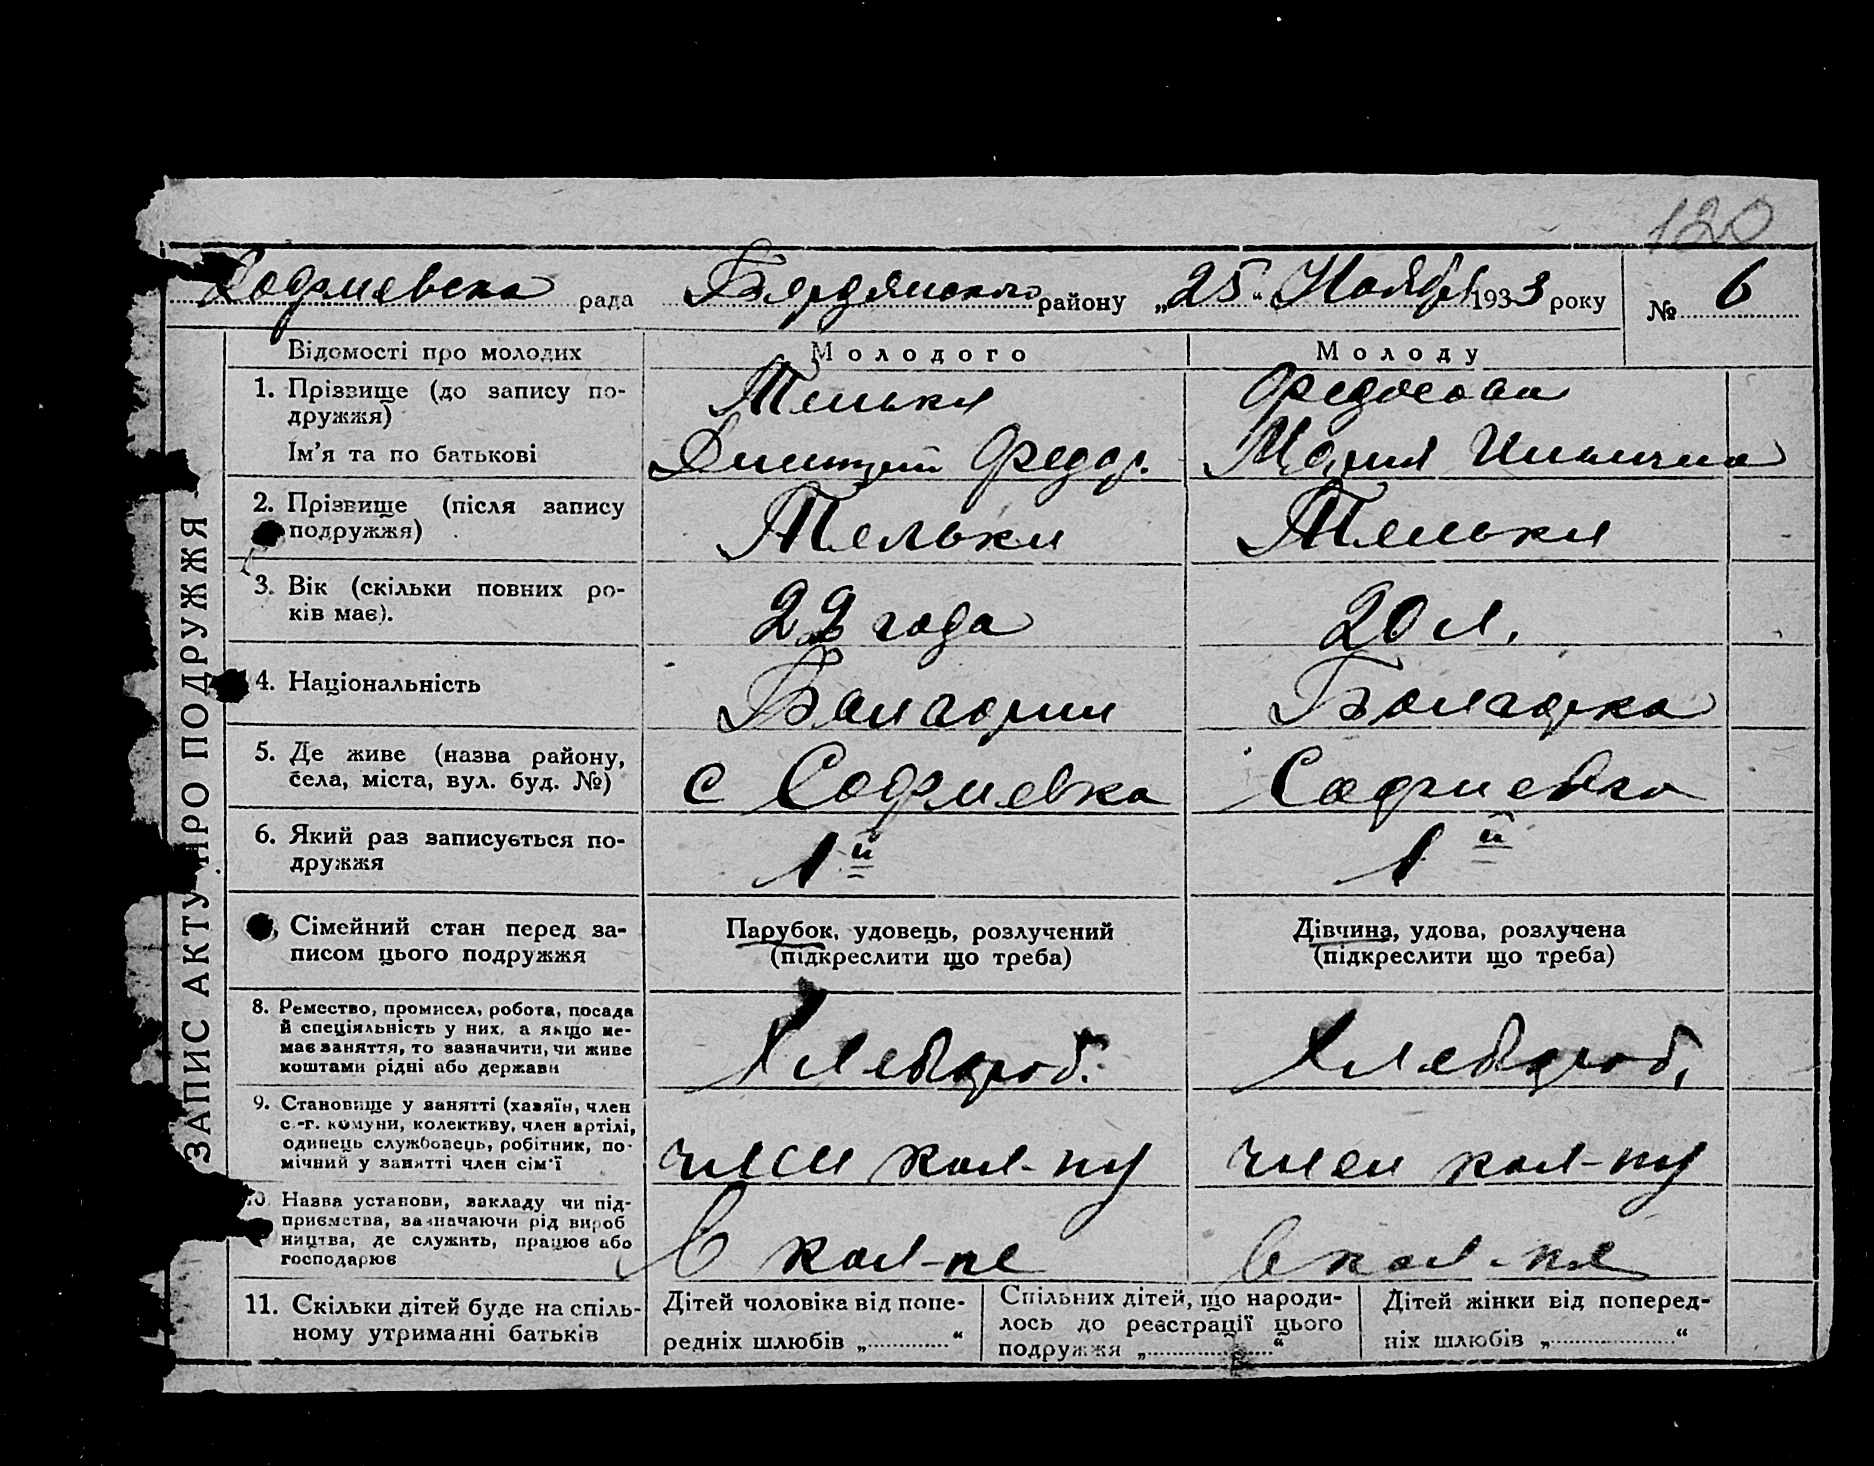 120
Софиевска рада Бердянского району „25“ Ноября 1933 року № 6
ЗАПИС АКТУ ПРО ПОДРУЖЖЯ
Відомості про молодих Молодого Молоду
1. Прізвище (до запису по-
дружжя)
Тельки Федосова
Ім'я та по батькові Дмитрий Федор. Мария
2. Прізвище (після запису
подружжя)
Тельки Тельки
3. Вік (скільки повних ро-
ків має).
22 года 20 л.
4. Національність Болгарин Болгарка
5. Де живе (назва району,
села, міста, вул. буд. №)
с Софиевка Софиевка
6. Який раз записується по-
дружжя
1й 1й
Сімейний стан перед за-
писом цього подружжя
Парубок, удовець, розлучений
(підкреслити що треба)
Дівчина, удова, розлучена
(підкреслити що треба)
8. Ремество, промисел, робота, посада
й спеціяльність у них, а якщо не-
має заняття, то зазначити, чи живе
коштами рідні або держави
Хлебороб. Хлебороб.
9. Становище у занятті (хазяїн, член
с.-г. комуни, колективу, член артілі,
одинець службовець, робітник, по-
мічний у занятті член сім'ї
член кол-ву член кол-ву
10. Назва установи, закладу чи під-
приємства, зазначаючи рід вироб
ництва, де служить, працює або
господарює
В кол-ве В кол-ве
11. Скільки дітей буде на спіль-
ному утриманні батьків
Дітей чоловіка від попе-
редніх шлюбів „ “
Спільних дітей, що народи-
лось до реєстрації цього
подружжя „ “
Дітей жінки від поперед-
ніх шлюбів „ “